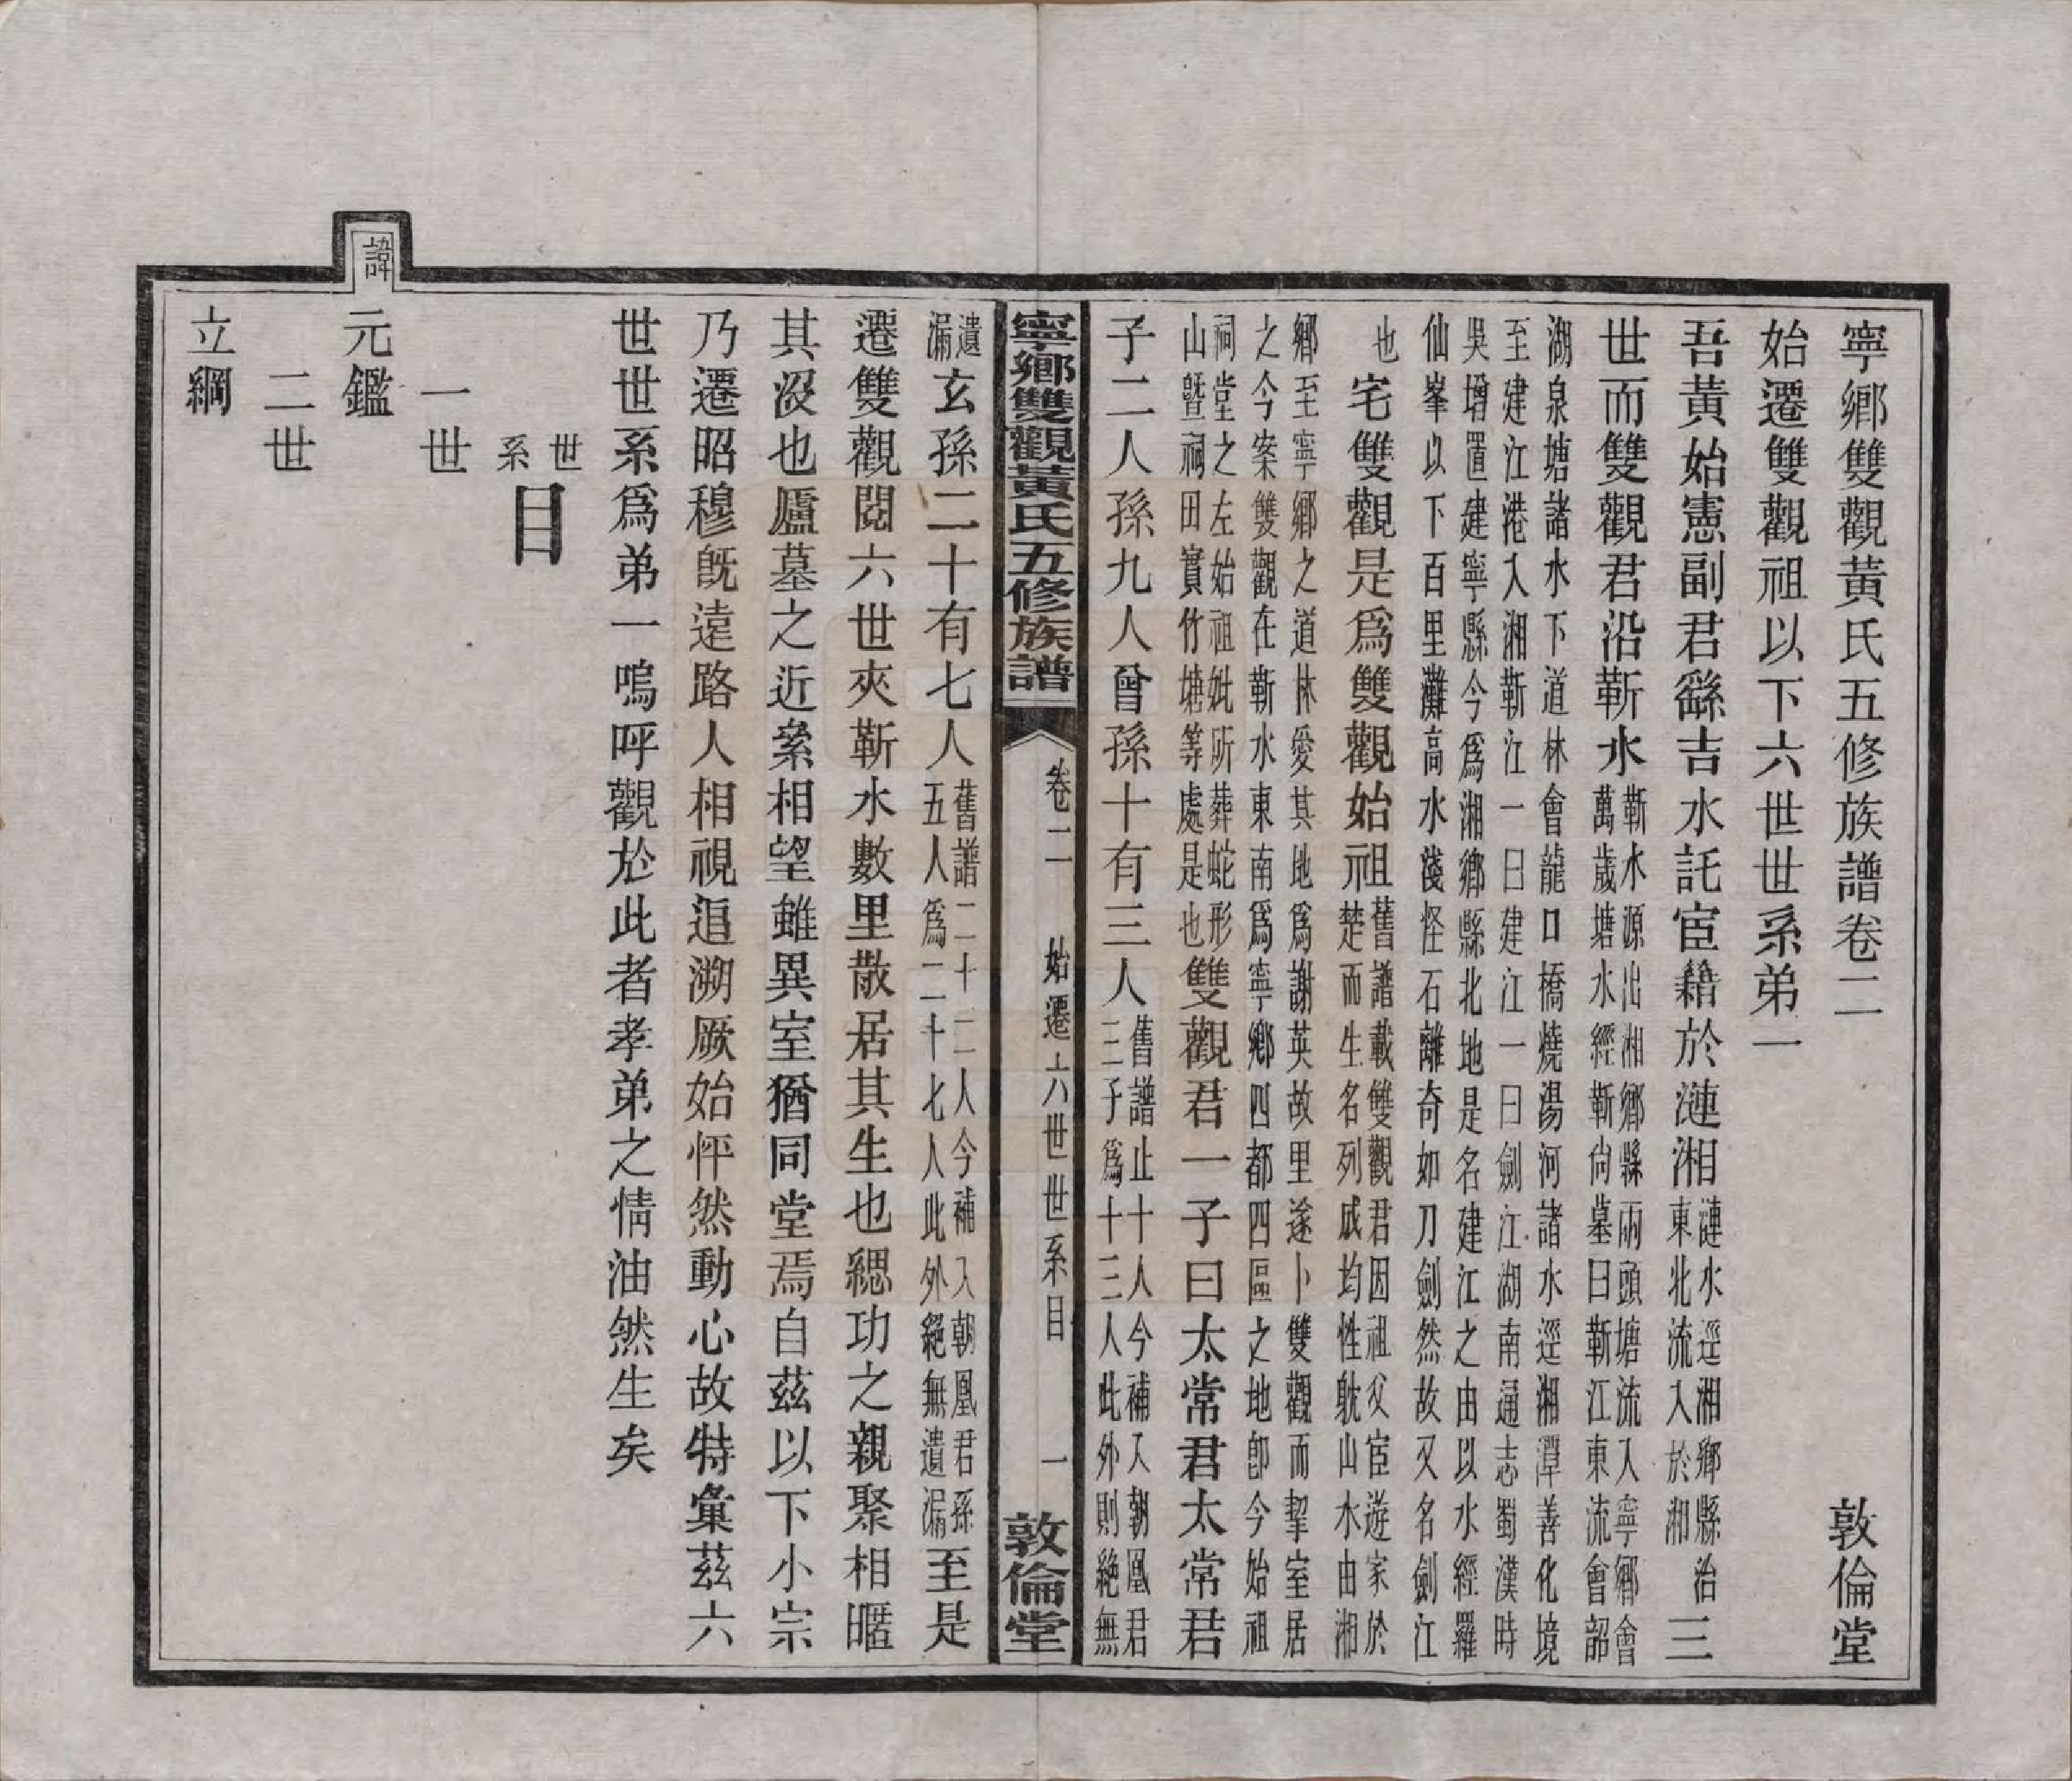 寧鄉雙觀黃氏五修族譜卷二
敦倫堂
始遷雙觀祖以下六世世系弟一
吾黃始憲副君繇吉水託宦籍於漣湘
漣水逕湘鄉縣治
東北流入於湘
三
世而雙觀君沿靳水
靳水源出湘鄉縣兩頭塘流入寧鄉會
萬歲塘水經靳尙墓曰靳江東流會韶
湖泉塘諸水下道林會龍口橋燒湯河諸水逕湘潭善化境
至建江港入湘靳江一曰建江一曰劍江湖南通志蜀漢時
吳增置建寧縣今爲湘鄉縣北地是名建江之由以水經羅
仙峯以下百里灘高水淺怪石離奇如刀劍然故又名劍江
也
宅雙觀是爲雙觀始祖
舊譜載雙觀君因祖父宦遊家於
楚而生名列成均性躭山水由湘
鄉至寧鄉之道林愛其地爲謝英故里遂卜雙觀而挈室居
之今案雙觀在靳水東南爲寧鄉四都四區之地卽今始祖
祠堂之左始祖妣所葬蛇形
山曁祠田實竹塘等處是也
雙觀君一子曰太常君太常君
子二人孫九人曾孫十有三人
舊譜止十人今補入朝凰君
三子爲十三人此外則絶無
寧鄉雙觀黃氏五修族譜
卷二
始遷六世世系目
一
敦倫堂
遺
漏
玄孫二十有七人
舊譜二十二人今補入朝凰君孫
五人爲二十七人此外絕無遺漏
至是
遷雙觀閱六世夾靳水數里散居其生也緦功之親聚相暱
其沒也廬墓之近絫相望雖異室猶同堂焉自茲以下小宗
乃遷昭穆旣遠路人相視追溯厥始怦然動心故特彙茲六
世世系爲弟一嗚呼觀於此者孝弟之情油然生矣
世
系
目
一世
諱
元鑑
二世
立綱